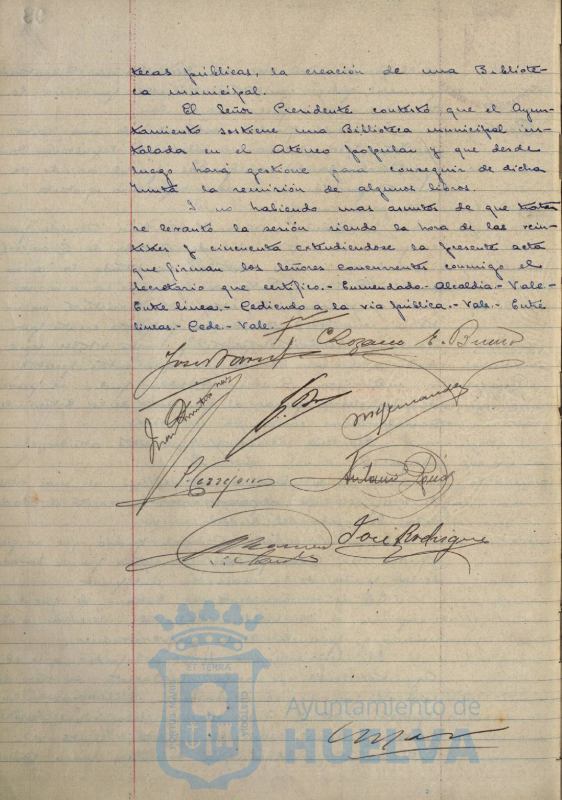 tecas públicas, la creación de una Bibliote-
ca municipal.
El Señor Presidente contestó que el Ayun-
tamiento sostiene una Biblioteca municipal ins-
talada en el Ateneo popular y que desde
luego hará gestione para conseguir de dicha
Junta la remisión de algunos libros.
Y no habiendo mas asuntos de que tratar
se levantó la sesión siendo la hora de las vein-
titres y cincuenta extendiendose la presente acta
que firman los señores concurrentes conmigo el
Secretario que certifico.- Enmendado- Alcaldia.- Vale-
Entre linea.- Cediendo a la via pública.- Vale.- Entre
lineas.- Cede.- Vale.
E. Bueno
M Hernandez
Antonio
José Rodrigue
ET TERRA
CUSTODIA
Ayuntamiento de
HUELVA